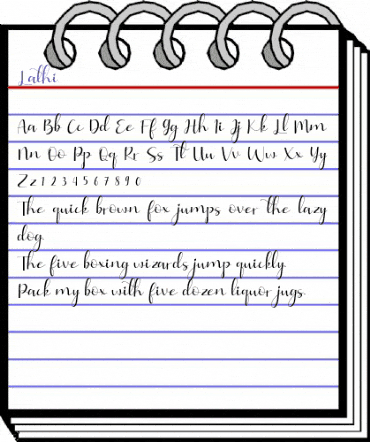 Lathi
Aa Bb Cc Dd Ee Ff Gg Hh Ii Jj Kk Ll Mm
Nn Oo Pp Qq Rr Ss Tt Uu Vv Ww Xx Yy
Zz 1 2 3 4 5 6 7 8 9 0
The quick brown fox jumps over the lazy
dog.
The five boxing wizards jump quickly.
Pack my box with five dozen liquor jugs.